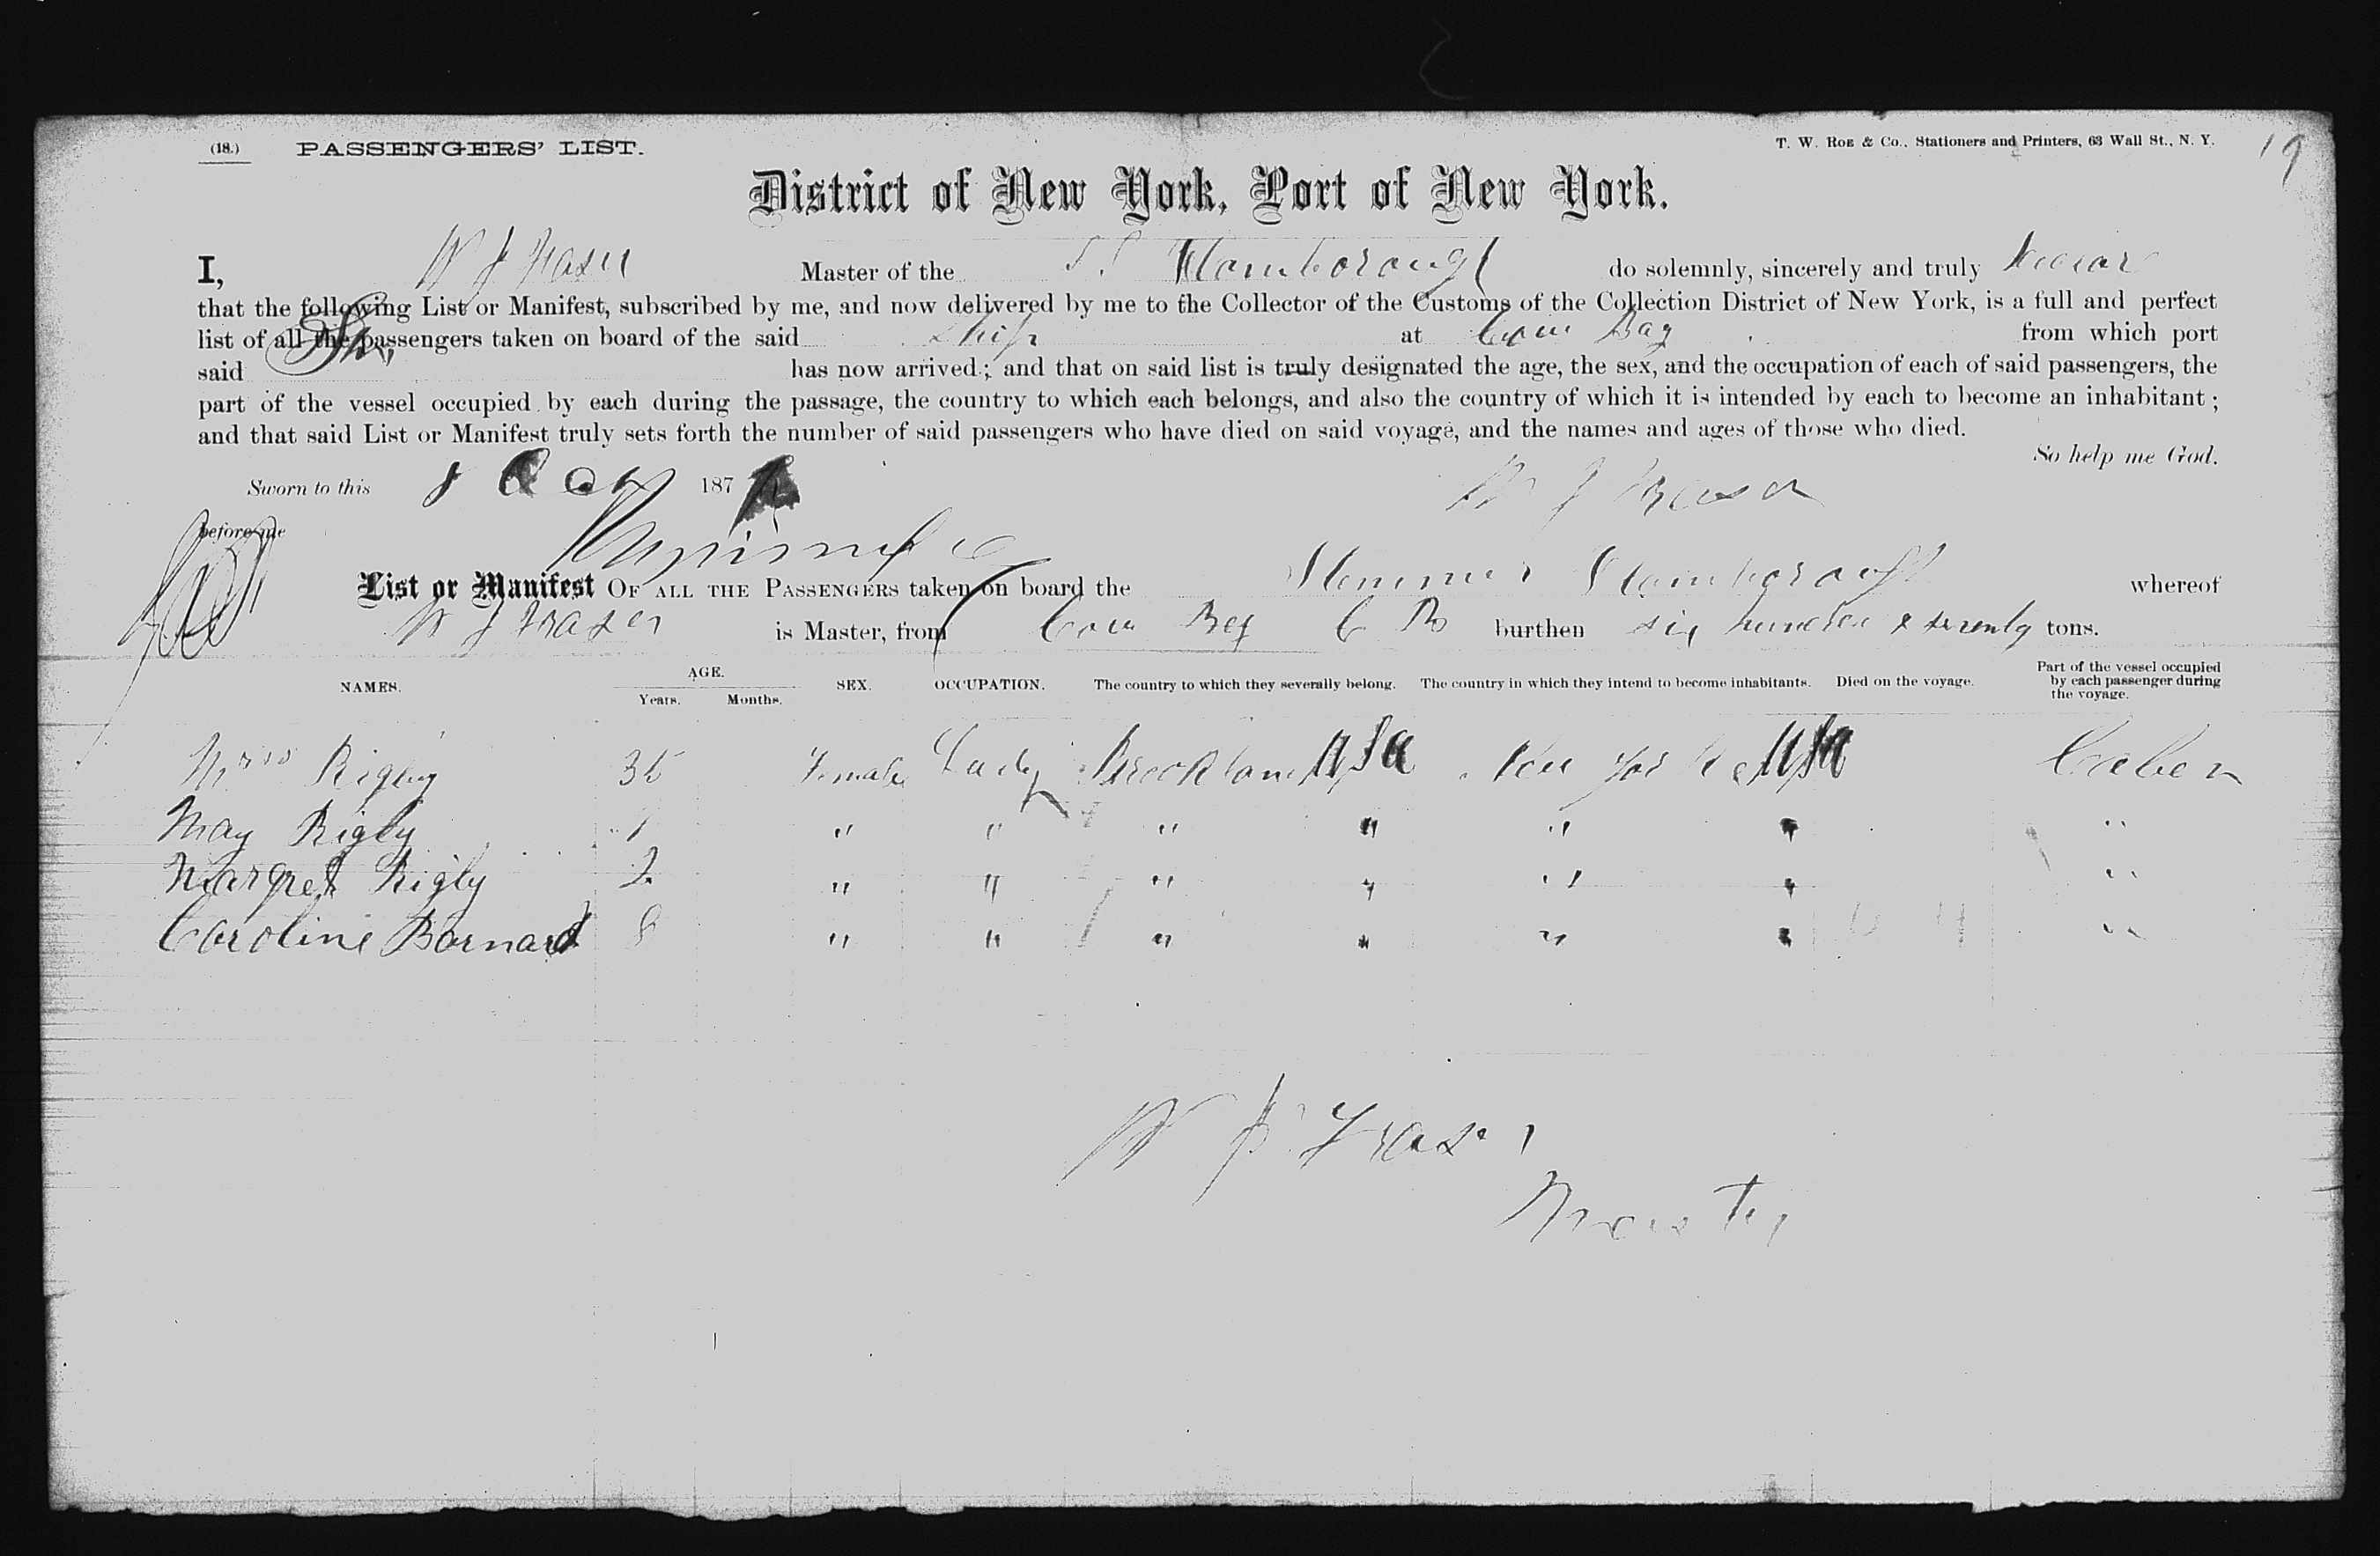 (18.) PASSENGERS' LIST. T. W. ROE & Co., Stationers and Printers, 63 Wall St., N. Y. 19
District of New York, Port of New York.
I, W J Fraser Master of the S.S. Flamborough do solemnly, sincerely and truly swear
that the following List or Manifest, subscribed by me, and now delivered by me to the Collector of the Customs of the Collection District of New York, is a full and perfect
list of all the passengers taken on board of the said Ship at Cow Bay from which port
said Ship has now arrived; and that on said list is truly designated the age, the sex, and the occupation of each of said passengers, the
part of the vessel occupied by each during the passage, the country to which each belongs, and also the country of which it is intended by each to become an inhabitant;
and that said List or Manifest truly sets forth the number of said passengers who have died on said voyage, and the names and ages of those who died.
So help me God.
Sworn to this 187 W J Fraser
before me
List or Manifest OF ALL THE PASSENGERS taken on board the Steamer Flamborough whereof
W J Fraser is Master, from Cow Bay C B burthen six hundred & seventy tons.
NAMES. AGE. Years. Months. SEX. OCCUPATION. The country to which they severally belong. The country in which they intend to become inhabitants. Died on the voyage. Part of the vessel occupied by each passenger during the voyage.
Mrss Rigby 35 Female Lady Brooklan USA New York USA Caben
May Rigby " " " " " " "
Margret Rigby 2 " " " " " " "
Caroline Barnard 8 " " " " " " "
W J Fraser
Master